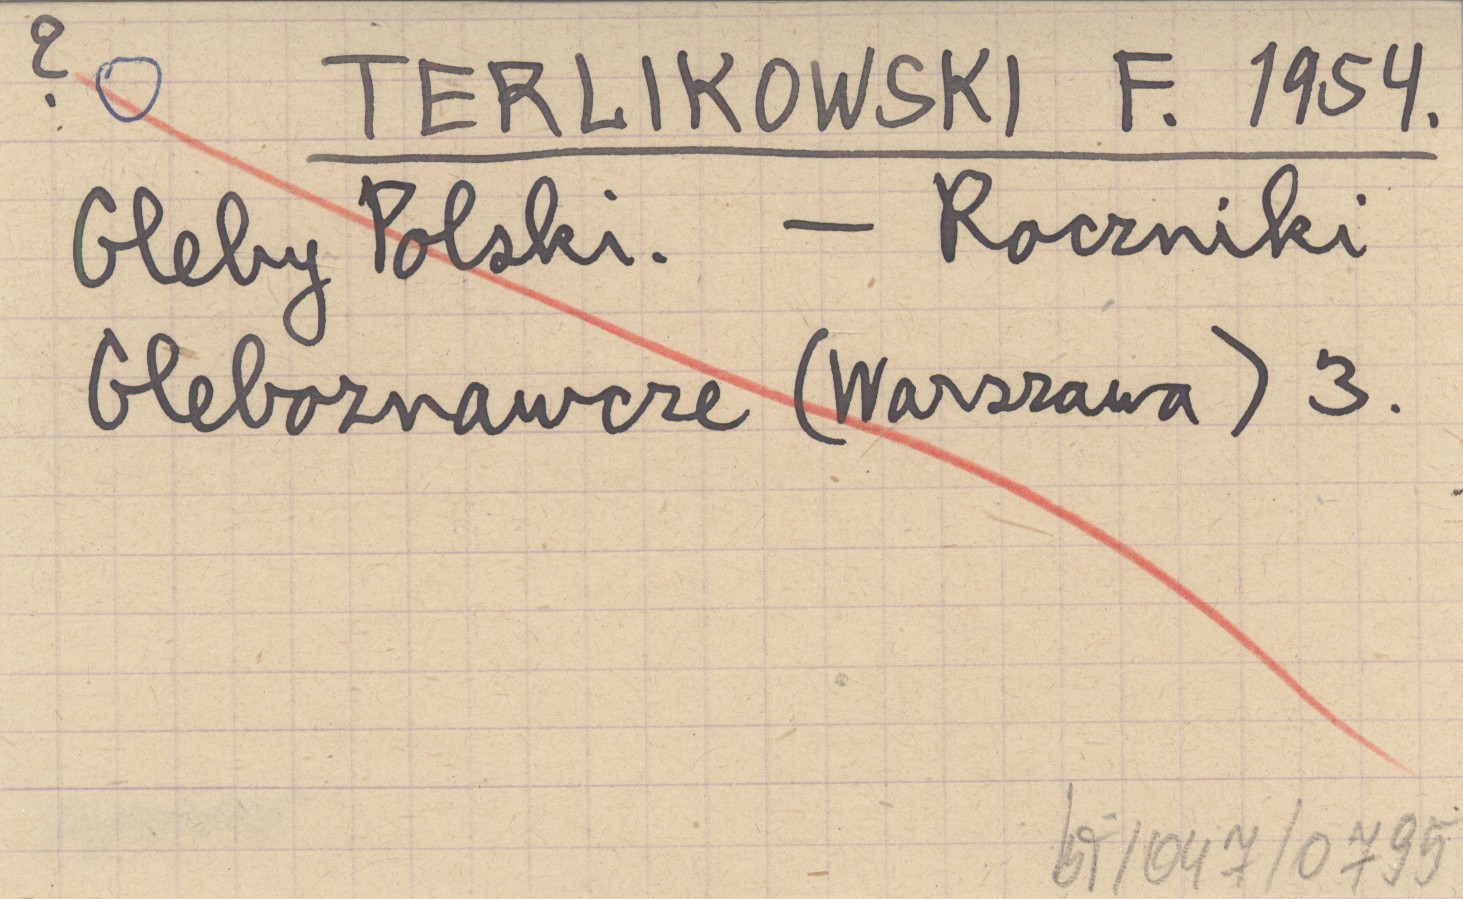 ? TERLIKOWSKI F. 1954.
Gleby Polski. — Roczniki
Gleboznawcze (Warszawa) 3.
/047/0795